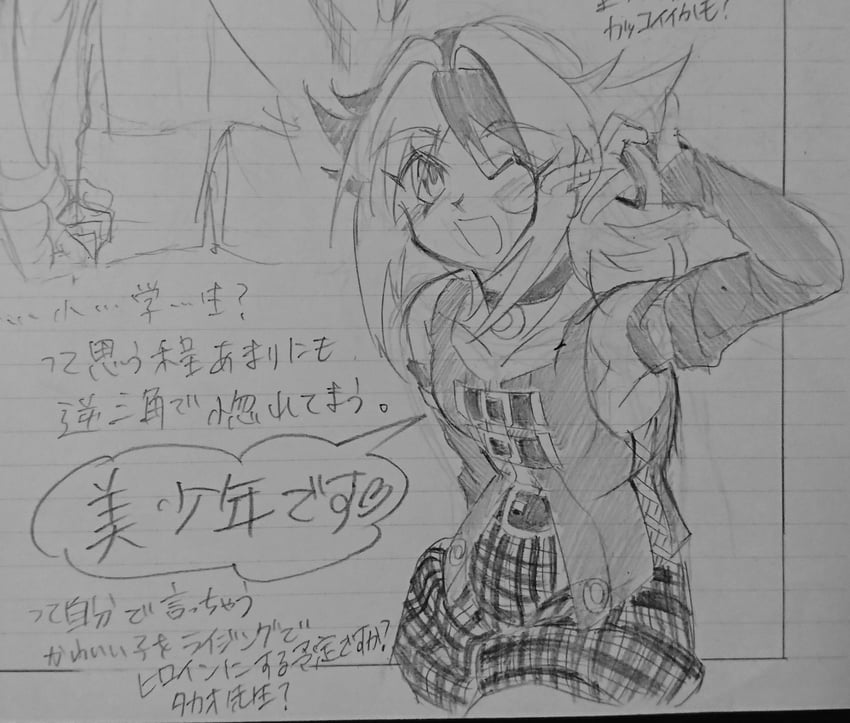 カッコイイかも?
……小…学…生?
って思う程あまりにも
逆三角で惚れてまう。
美少年です♡
って自分で言っちゃう
かわいい子をライジングで
ヒロインにする予定ですか?
タカオ先生?